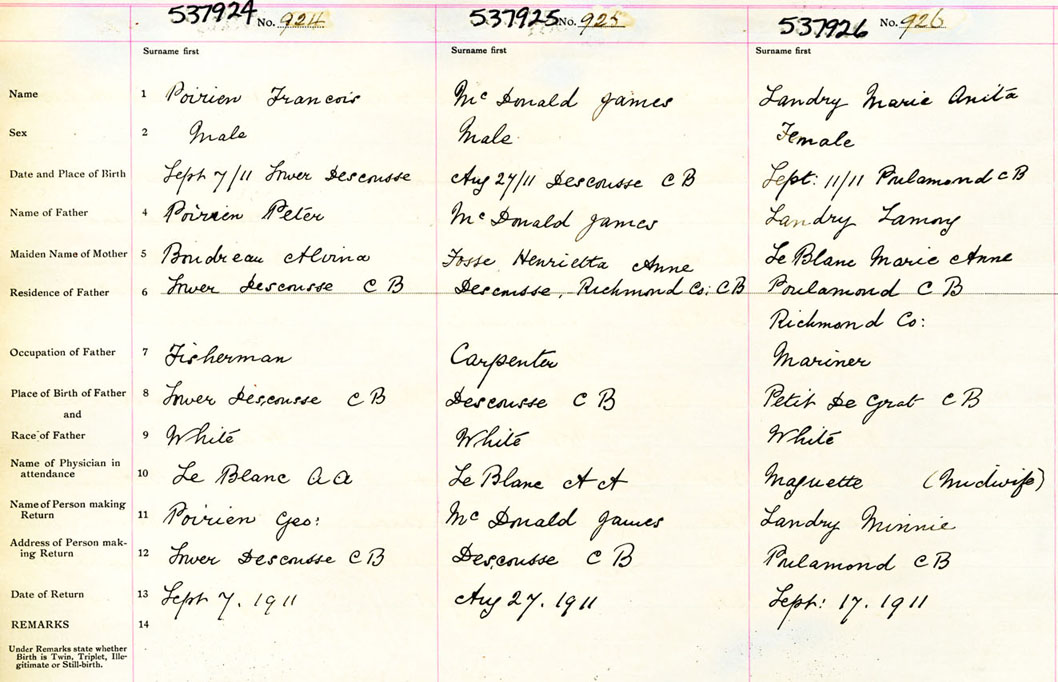 537924 No. 924 537925 No. 925 537926 No. 926
Surname first Surname first Surname first
Name 1 Poirien Francois Mc Donald James Landry Marie Anita
Sex 2 Male Male Female
Date and Place of Birth 3 Sept 7/11 Lower Descousse Aug 27/11 Descousse C B Sept: 11/11 Poulamond C B
Name of Father 4 Poirien Peter Mc Donald James Landry
Maiden Name of Mother 5 Boudreau Alvina Fosse Henrietta Anne Le Blanc Marie Anne
Residence of Father 6 Lower Descousse C B Descousse, Richmond Co: C B Poulamond C B
Richmond Co:
Occupation of Father 7 Fisherman Carpenter Mariner
Place of Birth of Father 8 Lower Descousse C B Descousse C B Petit De Grat C B
and
Race of Father 9 White White White
Name of Physician in
attendance 10 Le Blanc A A Le Blanc A A Maguette (Midwife)
Name of Person making
Return 11 Poirien Geo: Mc Donald James Landry Minnie
Address of Person mak-
ing Return 12 Lower Descousse C B Descousse C B Poulamond C B
Date of Return 13 Sept 7. 1911 Aug 27. 1911 Sept: 17. 1911
REMARKS 14
Under Remarks state whether
Birth is Twin, Triplet, Ille-
gitimate or Still-birth.